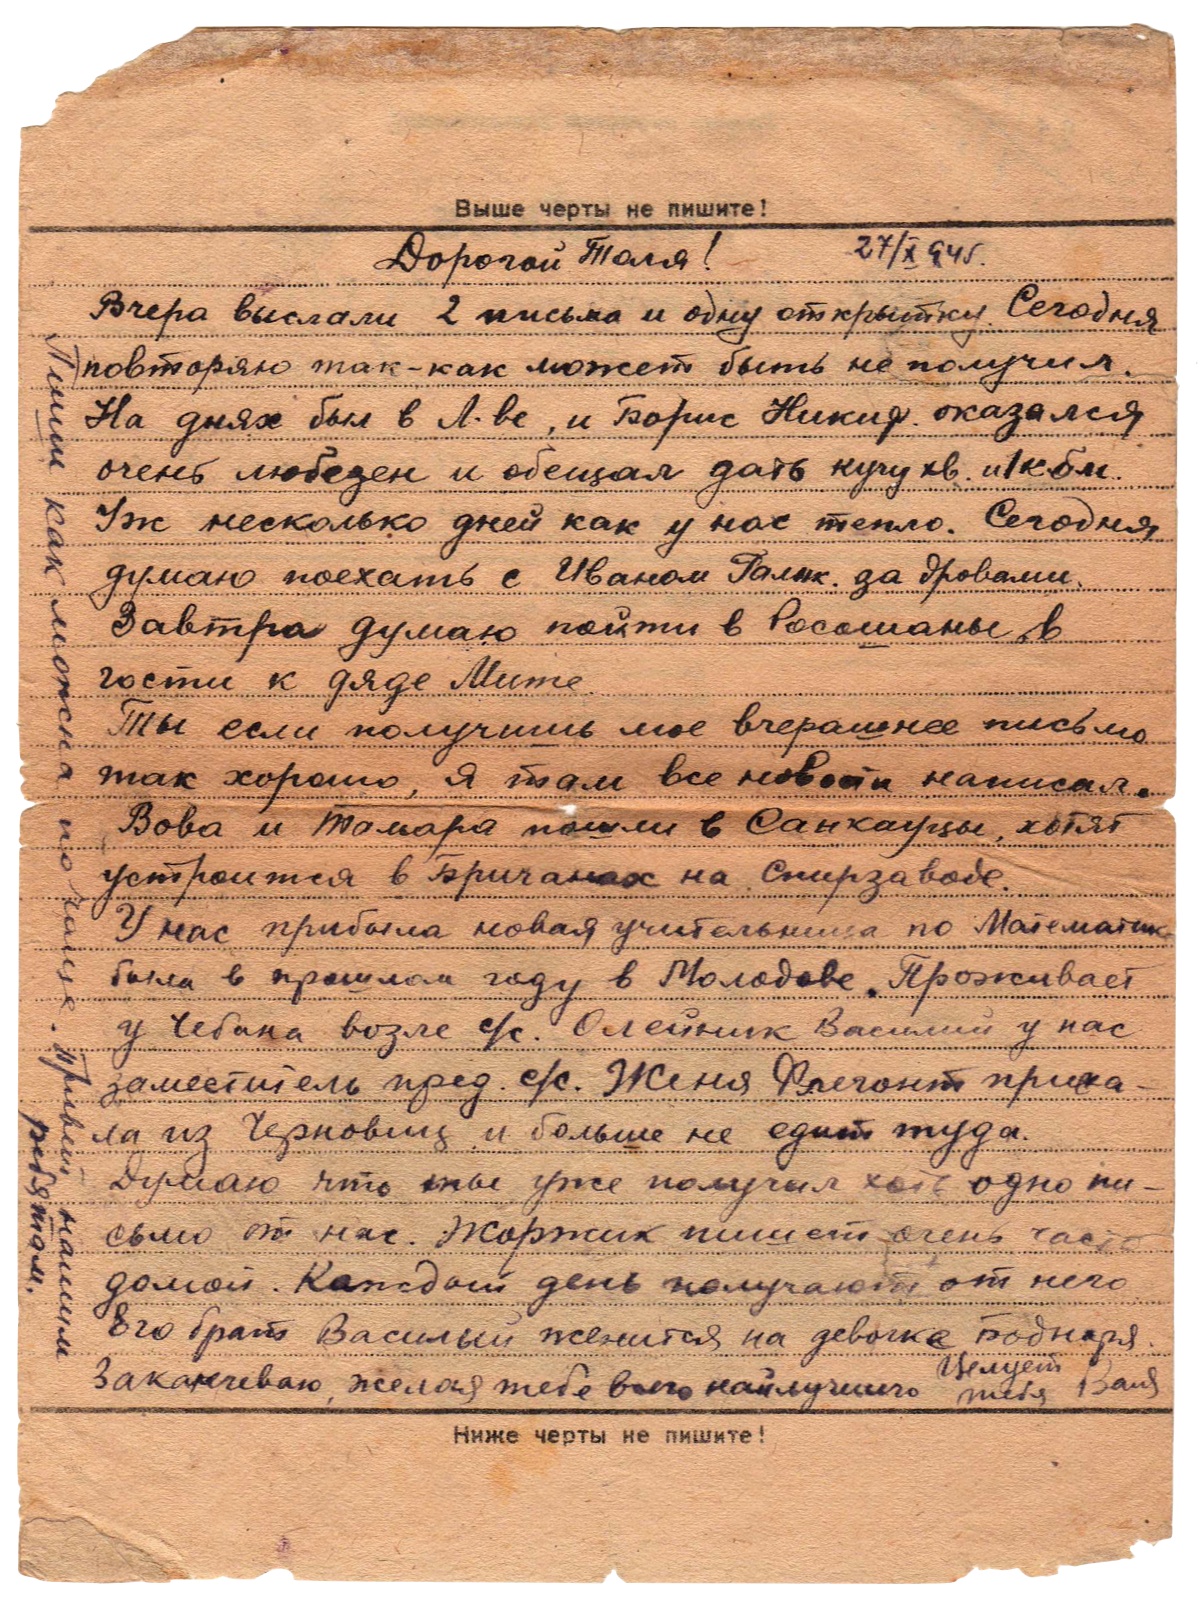 Выше черты не пишите!
Дорогой Толя! 27/X 945.
Вчера выслали 2 письма и одну открытку. Сегодня
повторяю так-как может быть не получил.
На днях был в Л-ве, и Борис Никиф. оказался
очень любезен и обещал дать кучу хв. и 1 к.бм.
Уж несколько дней как у нас тепло. Сегодня
думаю поехать с Иваном Галык. за дровами.
Завтра думаю пойти в Росошаны, в
гости к дяде Мите.
Ты если получишь мое вчерашнее письмо
так хорошо, я там все новости написал.
Вова и Тамара пошли в Санкауцы, хотят
устроится в Бричанах на Спирзаводе.
У нас прибыла новая учительница по Математике
была в прошлом году в Молодове. Проживает
у Чебана возле с/с. Олейник Василий у нас
заместитель пред. с/с. Женя приеха-
ла из Черновиц и больше не едит туда.
Думаю что ты уже получил хоть одно пи-
сьмо от нас. Жоржик пишет очень часто
домой. Каждый день получают от него
Его брат Василий женится на девочке Боднаря.
Заканчеваю, желая тебе всего наилучшего Целует тебя Валя
Ниже черты не пишите!
Пиши как можна почаще. Привет нашим
ребятам.